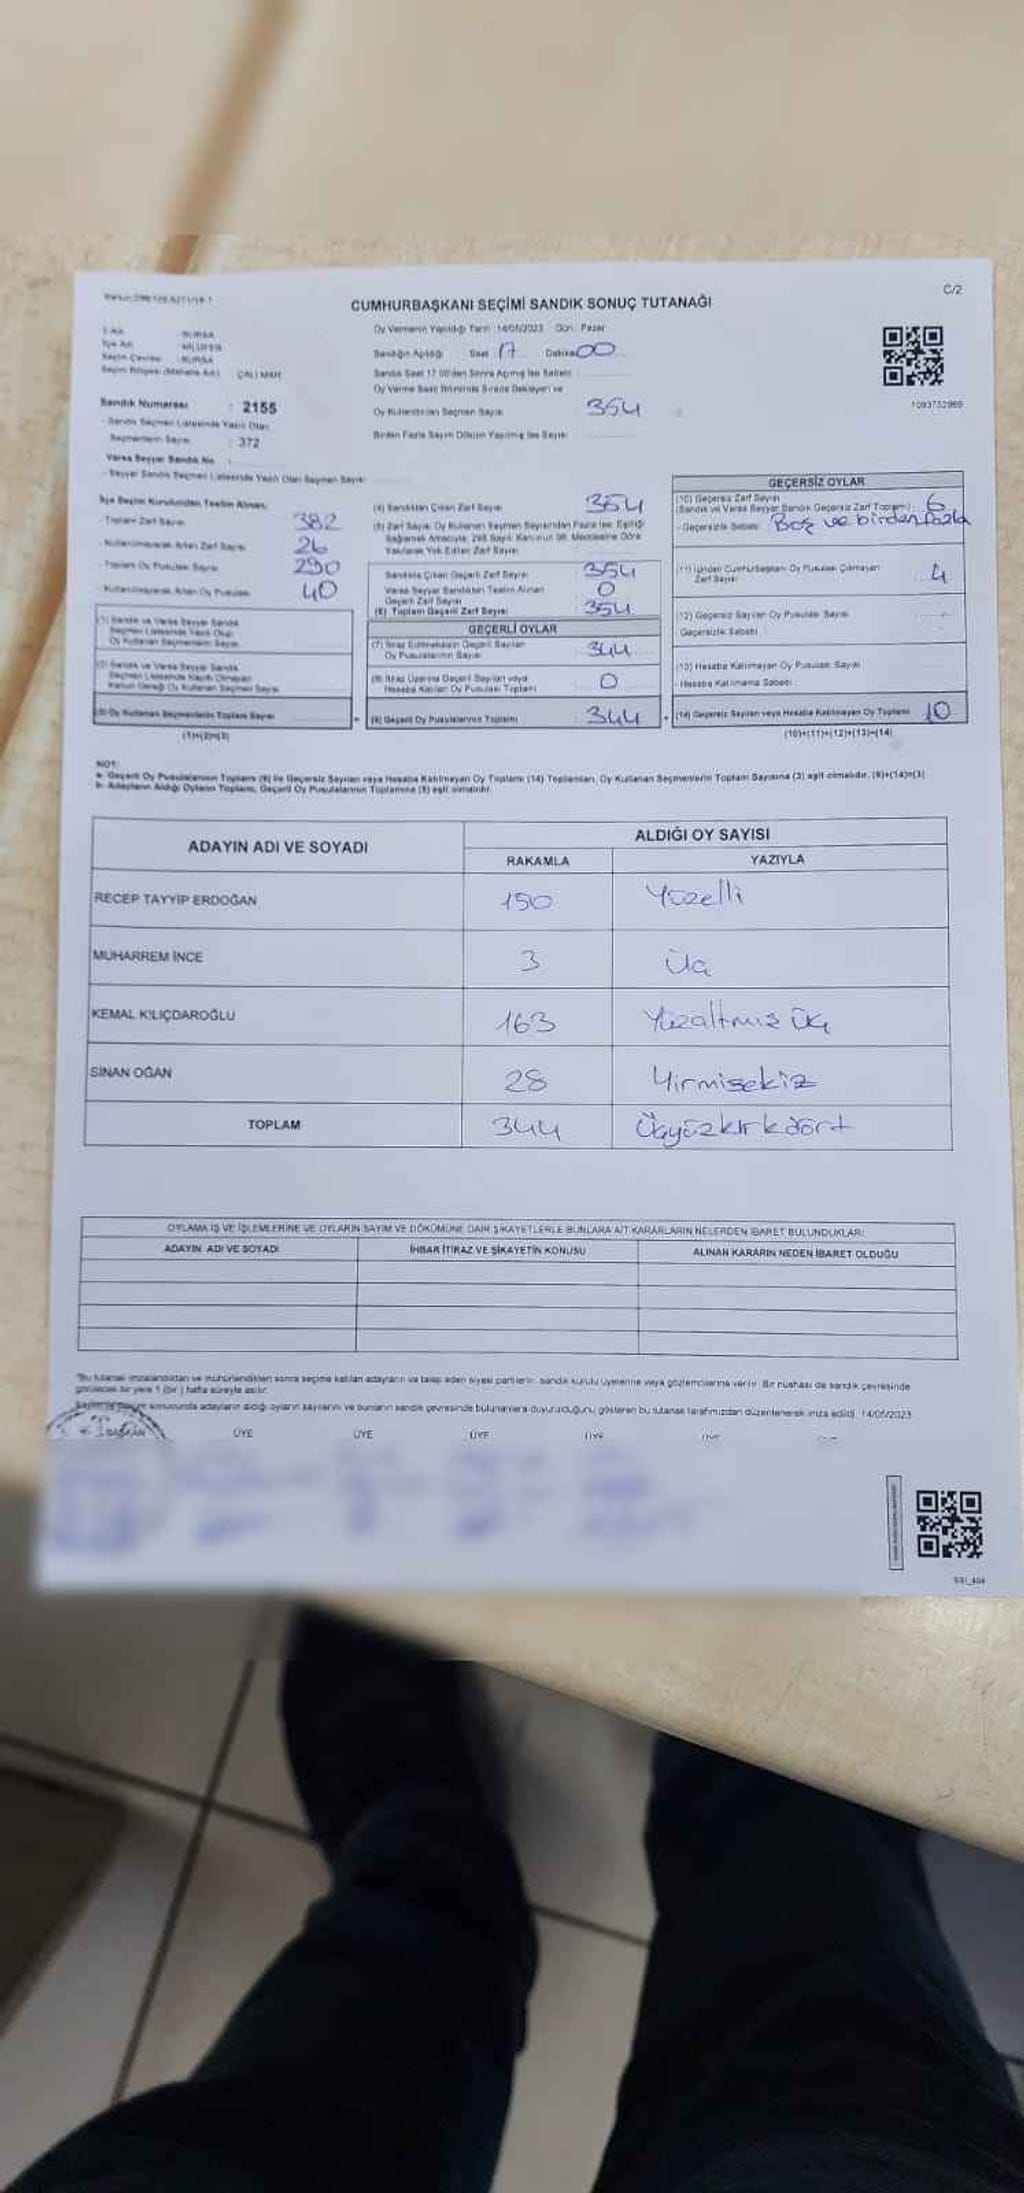 C/2
CUMHURBAŞKANI SEÇİMİ SANDIK SONUÇ TUTANAĞI
Oy Vermenin Yapıldığı Tarih :14/05/2023 Gün: Pazar
Sandığın Açıldığı Saat 17 Dakika 00
İlçe Adı : NİLÜFER
Seçim Çevresi : BURSA
Sandık Saat 17.00'den Sonra Açılmış İse Sebebi:
Oy Verme Saati Bitiminde Sırada Bekleyen ve
Sandık Numarası : 2155
Oy Kullandırılan Seçmen Sayısı 354
1093752969
- Sandık Seçmen Listesinde Yazılı Olan
Seçmenlerin Sayısı : 372
Birden Fazla Sayım Döküm Yapılmış İse Sayısı:
Varsa Seyyar Sandık No :
- Seyyar Sandık Seçmen Listesinde Yazılı Olan Seçmen Sayısı
İlçe Seçim Kurulundan Teslim Alınan;
- Toplam Zarf Sayısı 382
- Kullanılmayarak Artan Zarf Sayısı 26
- Toplam Oy Pusulası Sayısı 290
- Kullanılmayarak Artan Oy Pusulası 40
(1) Sandık ve Varsa Seyyar Sandık
Seçmen Listesinde Yazılı Olup
Oy Kullanan Seçmenlerin Sayısı
(2) Sandık ve Varsa Seyyar Sandık
Seçmen Listesinde Kayıtlı Olmayan
Kanun Gereği Oy Kullanan Seçmen Sayısı
(3) Oy Kullanan Seçmenlerin Toplam Sayısı
(1)+(2)=(3)
(4) Sandıktan Çıkan Zarf Sayısı 354
(5) Zarf Sayısı Oy Kullanan Seçmen Sayısından Fazla İse, Eşitliği
Sağlamak Amacıyla; 298 Sayılı Kanunun 98. Maddesine Göre
Yakılarak Yok Edilen Zarf Sayısı
Sandıkta Çıkan Geçerli Zarf Sayısı 354
Varsa Seyyar Sandıktan Teslim Alınan
Geçerli Zarf Sayısı 0
(6) Toplam Geçerli Zarf Sayısı 354
GEÇERLİ OYLAR
(7) İtiraz Edilmeksizin Geçerli Sayılan
Oy Pusulalarının Sayısı 344
(8) İtiraz Üzerine Geçerli Sayılan veya
Hesaba Katılan Oy Pusulası Toplamı 0
(9) Geçerli Oy Pusulalarının Toplamı 344
GEÇERSİZ OYLAR
(10) Geçersiz Zarf Sayısı
(Sandık ve Varsa Seyyar Sandık Geçersiz Zarf Toplamı) : 6
- Geçersizlik Sebebi: Boş ve birden fazla
(11) İçinden Cumhurbaşkanı Oy Pusulası Çıkmayan
Zarf Sayısı 4
(12) Geçersiz Sayılan Oy Pusulası Sayısı
- Geçersizlik Sebebi
(13) Hesaba Katılmayan Oy Pusulası Sayısı
- Hesaba Katılmama Sebebi
(14) Geçersiz Sayılan veya Hesaba Katılmayan Oy Toplamı 10
(10)+(11)+(12)+(13)=(14)
NOT:
a- Geçerli Oy Pusulalarının Toplamı (9) ile Geçersiz Sayılan veya Hesaba Katılmayan Oy Toplamı (14) Toplamları, Oy Kullanan Seçmenlerin Toplam Sayısına (3) eşit olmalıdır. (9)+(14)=(3)
b- Adayların Aldığı Oyların Toplamı, Geçerli Oy Pusulalarının Toplamına (9) eşit olmalıdır.
ADAYIN ADI VE SOYADI
ALDIĞI OY SAYISI
RAKAMLA YAZIYLA
RECEP TAYYİP ERDOĞAN 150 Yüzelli
MUHARREM İNCE 3 Üç
KEMAL KILIÇDAROĞLU 163 Yüzaltmış üç
SİNAN OĞAN 28 Yirmisekiz
TOPLAM 344 Üçyüzkırkdört
OYLAMA İŞ VE İŞLEMLERİNE VE OYLARIN SAYIM VE DÖKÜMÜNE DAİR ŞİKAYETLERLE BUNLARA AİT KARARLARIN NELERDEN İBARET BULUNDUKLARI
ADAYIN ADI VE SOYADI İHBAR İTİRAZ VE ŞİKAYETİN KONUSU ALINAN KARARIN NEDEN İBARET OLDUĞU
"Bu tutanak imzalandıktan ve mühürlendikten sonra seçime katılan adayların ve talep eden siyasi partilerin, sandık kurulu üyelerine veya gözlemcilerine verilir. Bir nüshası da sandık çevresinde
görülecek bir yere 1 (bir) hafta süreyle asılır.
sonucunda adayların aldığı oyların sayılarını ve bunların sandık çevresinde bulunanlara duyurulduğunu gösteren bu tutanak tarafımızdan düzenlenerek imza edildi. 14/05/2023
ÜYE ÜYE ÜYE ÜYE